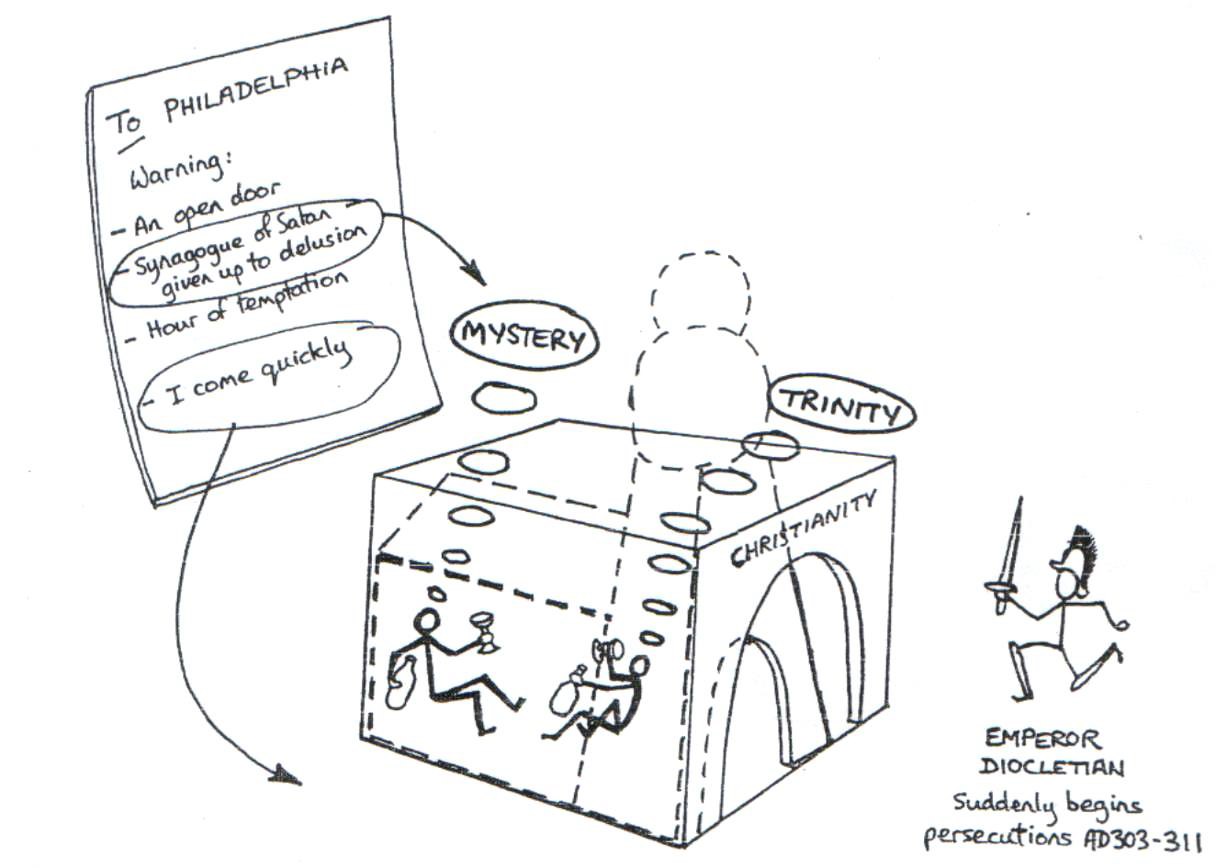 To PHILADELPHIA
Warning:
- An open door
- Synagogue of Satan
given up to delusion
- Hour of temptation
- I come quickly
MYSTERY
TRINITY
CHRISTIANITY
EMPEROR
DIOCLETIAN
Suddenly begins
persecutions AD303-311